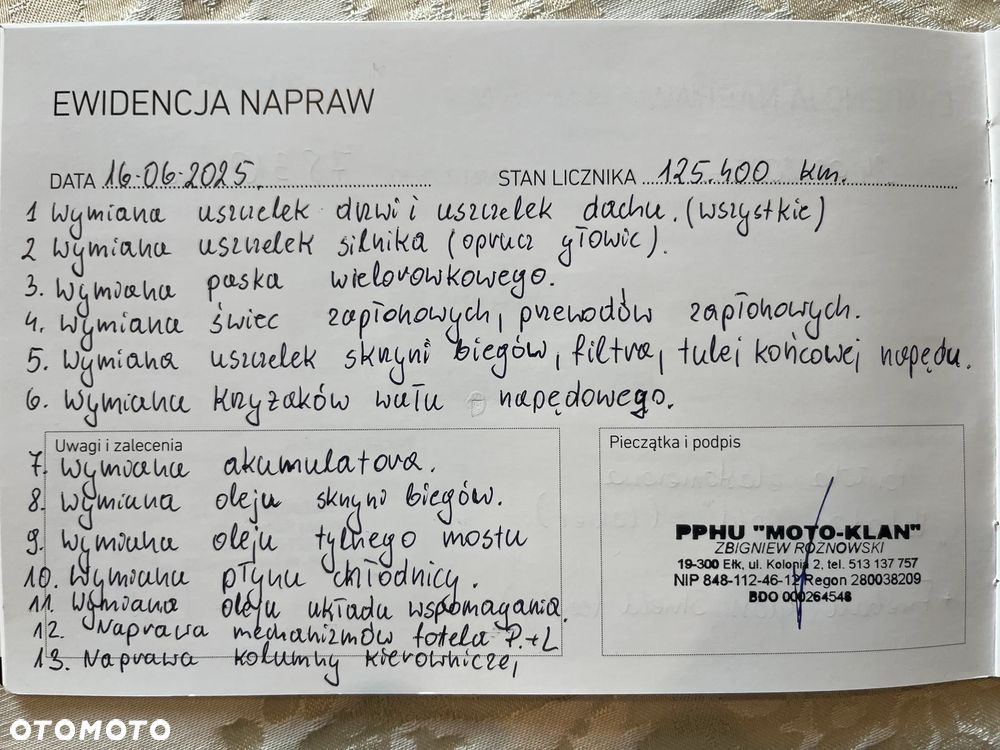 EWIDENCJA NAPRAW
DATA 16.06.2025.
STAN LICZNIKA 125.400 km.
1 Wymiana uszczelek drzwi i uszczelek dachu. (wszystkie)
2 Wymiana uszczelek silnika (oprucz głowic).
3. Wymiana paska wielorowkowego.
4. Wymiana świec zapłonowych, przewodów zapłonowych.
5. Wymiana uszczelek skrzyni biegów, filtra, tulei końcowej napędu.
6. Wymiana krzyżaków wału napędowego.
Uwagi i zalecenia
7. Wymiana akumulatora.
8. Wymiana oleju skrzyni biegów.
9. Wymiana oleju tylnego mostu
10. Wymiana płynu chłodnicy.
11. Wymiana oleju układu wspomagania.
12. Naprawa mechanizmów fotela P.+L
13. Naprawa kolumny kierowniczej,
Pieczątka i podpis
PPHU "MOTO-KLAN"
ZBIGNIEW ROŻNOWSKI
19-300 Ełk, ul. Kolonia 2, tel. 513 137 757
NIP 848-112-46-12 Regon 280038209
BDO 000264548
OTOMOTO